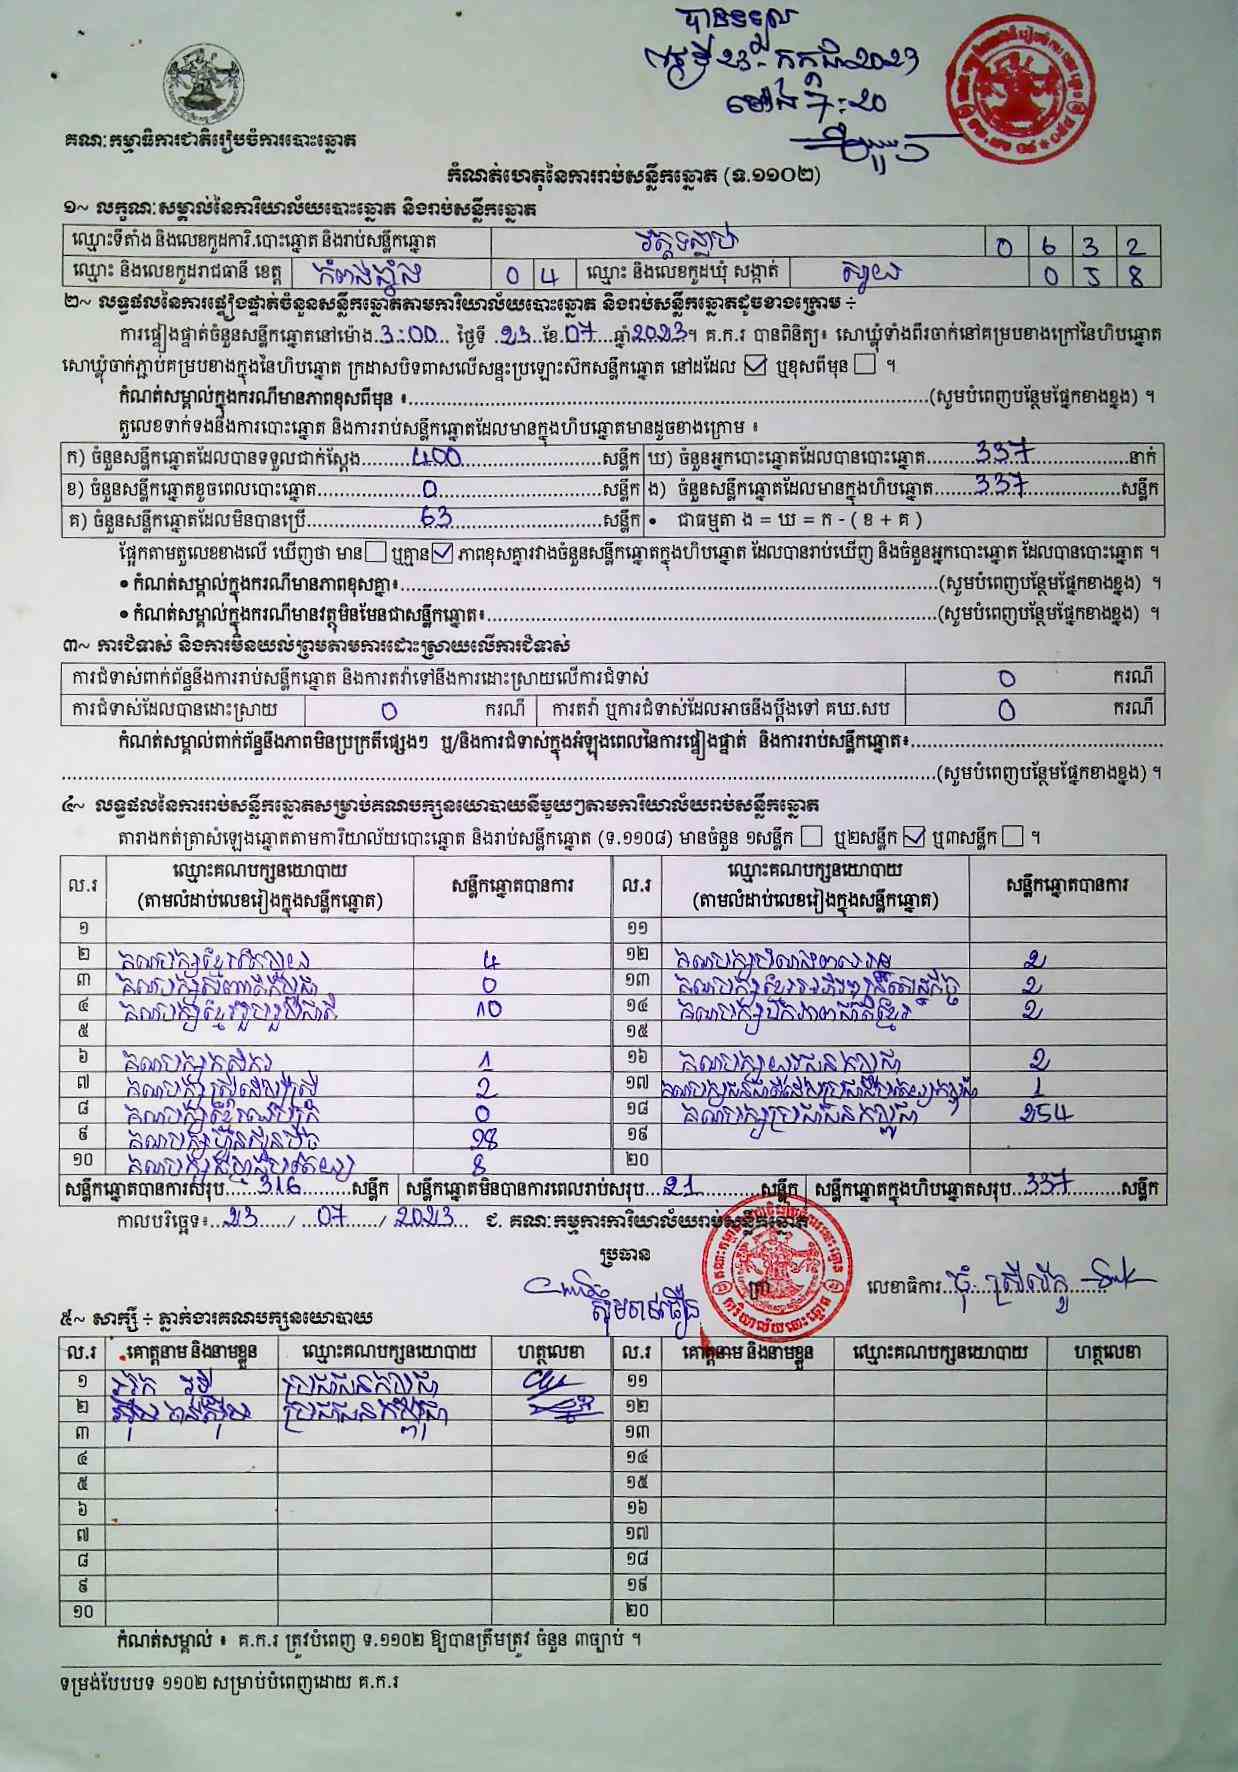 បានទទួល
ថ្ងៃទី 23 - កក្កដា 2023
ម៉ោង 7:20
គណៈកម្មាធិការជាតិរៀបចំការបោះឆ្នោត
កំណត់ហេតុនៃការរាប់សន្លឹកឆ្នោត (ទ.១១០២)
១~ លក្ខណៈសម្គាល់នៃការិយាល័យបោះឆ្នោត និងរាប់សន្លឹកឆ្នោត
ឈ្មោះទីតាំង និងលេខកូដការិ.បោះឆ្នោត និងរាប់សន្លឹកឆ្នោត 0 6 3 2
ឈ្មោះ និងលេខកូដរាជធានី ខេត្ត កំពង់ឆ្នាំង 0 4 ឈ្មោះ និងលេខកូដឃុំ សង្កាត់ ស្វាយ 0 5 8
២~ លទ្ធផលនៃការផ្ទៀងផ្ទាត់ចំនួនសន្លឹកឆ្នោតតាមការិយាល័យបោះឆ្នោត និងរាប់សន្លឹកឆ្នោតដូចខាងក្រោម ÷
ការផ្ទៀងផ្ទាត់ចំនួនសន្លឹកឆ្នោតនៅម៉ោង 3:00 ថ្ងៃទី 23 ខែ 07 ឆ្នាំ 2023។ គ.ក.រ បានពិនិត្យ៖ សោឃ្លុំទាំងពីរចាក់នៅគម្របខាងក្រៅនៃហិបឆ្នោត
សោឃ្លុំចាក់ភ្ជាប់គម្របខាងក្នុងនៃហិបឆ្នោត ក្រដាសបិទពាសលើសន្ទះប្រឡោះស៊កសន្លឹកឆ្នោត នៅដដែល ☑ ឬខុសពីមុន ☐ ។
កំណត់សម្គាល់ក្នុងករណីមានភាពខុសពីមុន ៖ (សូមបំពេញបន្ថែមផ្នែកខាងខ្នង) ។
តួលេខទាក់ទងនឹងការបោះឆ្នោត និងការរាប់សន្លឹកឆ្នោតដែលមានក្នុងហិបឆ្នោតមានដូចខាងក្រោម ៖
ក) ចំនួនសន្លឹកឆ្នោតដែលបានទទួលជាក់ស្តែង 400 សន្លឹក ឃ) ចំនួនអ្នកបោះឆ្នោតដែលបានបោះឆ្នោត 337 នាក់
ខ) ចំនួនសន្លឹកឆ្នោតខូចពេលបោះឆ្នោត 0 សន្លឹក ង) ចំនួនសន្លឹកឆ្នោតដែលមានក្នុងហិបឆ្នោត 337 សន្លឹក
គ) ចំនួនសន្លឹកឆ្នោតដែលមិនបានប្រើ 63 សន្លឹក • ជាធម្មតា ង = ឃ = ក - ( ខ + គ )
ផ្អែកតាមតួលេខខាងលើ ឃើញថា មាន ☐ ឬគ្មាន ☑ ភាពខុសគ្នារវាងចំនួនសន្លឹកឆ្នោតក្នុងហិបឆ្នោត ដែលបានរាប់ឃើញ និងចំនួនអ្នកបោះឆ្នោត ដែលបានបោះឆ្នោត ។
• កំណត់សម្គាល់ក្នុងករណីមានភាពខុសគ្នា៖ (សូមបំពេញបន្ថែមផ្នែកខាងខ្នង) ។
• កំណត់សម្គាល់ក្នុងករណីមានវត្ថុមិនមែនជាសន្លឹកឆ្នោត៖ (សូមបំពេញបន្ថែមផ្នែកខាងខ្នង) ។
៣~ ការជំទាស់ និងការមិនយល់ព្រមតាមការដោះស្រាយលើការជំទាស់
ការជំទាស់ពាក់ព័ន្ធនឹងការរាប់សន្លឹកឆ្នោត និងការតវ៉ាទៅនឹងការដោះស្រាយលើការជំទាស់ 0 ករណី
ការជំទាស់ដែលបានដោះស្រាយ 0 ករណី ការតវ៉ា ឬការជំទាស់ដែលអាចនឹងប្តឹងទៅ គឃ.សប 0 ករណី
កំណត់សម្គាល់ពាក់ព័ន្ធនឹងភាពមិនប្រក្រតីផ្សេងៗ ឬ/និងការជំទាស់ក្នុងអំឡុងពេលនៃការផ្ទៀងផ្ទាត់ និងការរាប់សន្លឹកឆ្នោត៖
(សូមបំពេញបន្ថែមផ្នែកខាងខ្នង) ។
៤~ លទ្ធផលនៃការរាប់សន្លឹកឆ្នោតសម្រាប់គណបក្សនយោបាយនីមួយៗតាមការិយាល័យរាប់សន្លឹកឆ្នោត
តារាងកត់ត្រាសំឡេងឆ្នោតតាមការិយាល័យបោះឆ្នោត និងរាប់សន្លឹកឆ្នោត (ទ.១១០៨) មានចំនួន ១សន្លឹក ☐ ឬ២សន្លឹក ☑ ឬ៣សន្លឹក ☐ ។
ល.រ ឈ្មោះគណបក្សនយោបាយ (តាមលំដាប់លេខរៀងក្នុងសន្លឹកឆ្នោត) សន្លឹកឆ្នោតបានការ ល.រ ឈ្មោះគណបក្សនយោបាយ (តាមលំដាប់លេខរៀងក្នុងសន្លឹកឆ្នោត) សន្លឹកឆ្នោតបានការ
១ ១១
២ គណបក្សខ្មែរ 4 ១២ គណបក្ស 2
៣ គណបក្ស 0 ១៣ គណបក្សខ្មែរ 2
៤ គណបក្សខ្មែររួបរួមជាតិ 10 ១៤ គណបក្សឯកភាពជាតិខ្មែរ 2
៥ ១៥
៦ គណបក្សកសិករ 1 ១៦ គណបក្សយុវជនកម្ពុជា 2
៧ គណបក្សស្ត្រីដើម្បីស្ត្រី 2 ១៧ គណបក្ស 1
៨ គណបក្សខ្មែរ 0 ១៨ គណបក្សប្រជាជនកម្ពុជា 254
៩ គណបក្សហ៊្វុនស៊ិនប៉ិច 28 ១៩
១០ គណបក្ស 8 ២០
សន្លឹកឆ្នោតបានការសរុប 316 សន្លឹក សន្លឹកឆ្នោតមិនបានការពេលរាប់សរុប 21 សន្លឹក សន្លឹកឆ្នោតក្នុងហិបឆ្នោតសរុប 337 សន្លឹក
កាលបរិច្ឆេទ៖ 23 / 07 / 2023 ជ. គណៈកម្មការការិយាល័យរាប់សន្លឹកឆ្នោត
ប្រធាន
ត្រា លេខាធិការ
៥~ សាក្សី ÷ ភ្នាក់ងារគណបក្សនយោបាយ
ល.រ គោត្តនាម និងនាមខ្លួន ឈ្មោះគណបក្សនយោបាយ ហត្ថលេខា ល.រ គោត្តនាម និងនាមខ្លួន ឈ្មោះគណបក្សនយោបាយ ហត្ថលេខា
១ ប្រជាជនកម្ពុជា ១១
២ ប្រជាជនកម្ពុជា ១២
៣ ១៣
៤ ១៤
៥ ១៥
៦ ១៦
៧ ១៧
៨ ១៨
៩ ១៩
១០ ២០
កំណត់សម្គាល់ ៖ គ.ក.រ ត្រូវបំពេញ ទ.១១០២ ឱ្យបានត្រឹមត្រូវ ចំនួន ៣ច្បាប់ ។
ទម្រង់បែបបទ ១១០២ សម្រាប់បំពេញដោយ គ.ក.រ